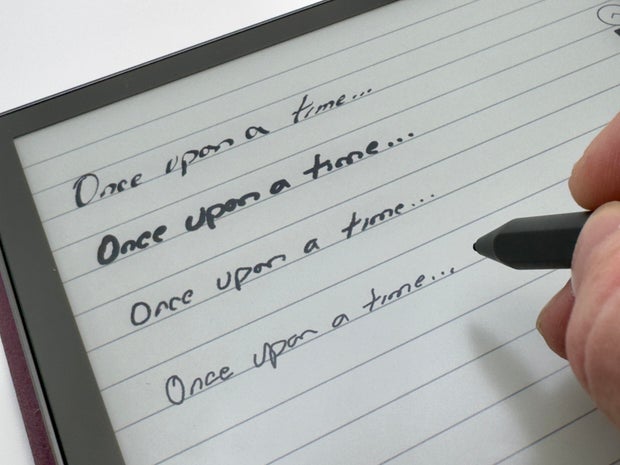 Once upon a time...
Once upon a time...
Once upon a time...
Once upon a time...